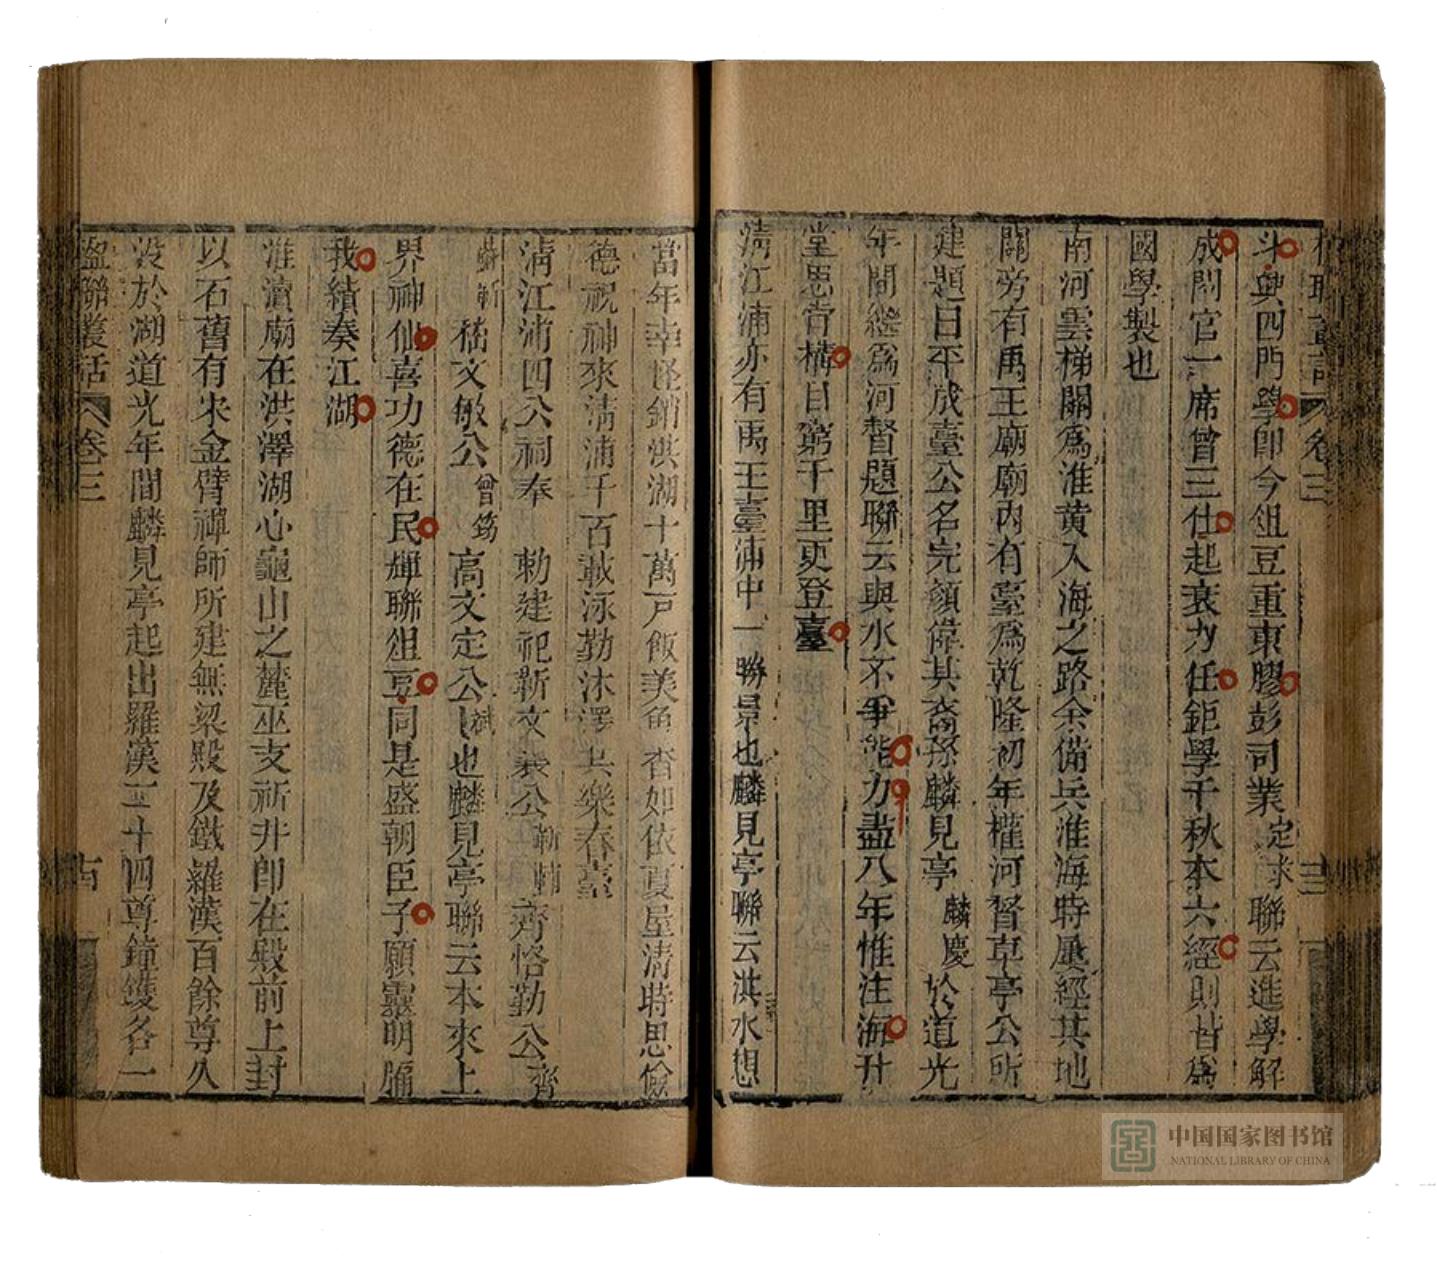 楹聯叢話 卷三
斗與四門學卽今俎豆重東膠彭司業定求聯云進學解
成閒官一席曾三仕起衰力任鉅學千秋本六經則皆爲
國學製也
南河雲梯關爲淮黃入海之路余備兵淮海時屢經其地
關旁有禹王廟廟內有臺爲乾隆初年權河督草亭公所
建題曰平成臺公名完顏偉其裔孫麟見亭麟慶於道光
年間繼爲河督題聯云與水不爭能力盡八年惟注海升
堂思昔構目窮千里更登臺
清江浦亦有禹王臺浦中一勝景也麟見亭聯云洪水想
當年幸怪銷淇湖十萬戶飯美魚香如依夏屋清時思儉
德祝神來清浦千百載泳勤沐澤共樂春臺
清江浦四公祠奉 勅建祀靳文襄公靳輔齊恪勤公齊
蘇勒嵇文敏公曾筠高文定公斌也麟見亭聯云本來上
界神仙喜功德在民輝聯俎豆同是盛朝臣子願靈明牖
我績奏江湖
淮瀆廟在洪澤湖心龜山之麓巫支祈井卽在殿前上封
以石舊有宋金臂禪師所建無梁殿及鐵羅漢百餘尊久
沒於湖道光年間麟見亭起出羅漢五十四尊鐘鑊各一
楹聯叢話 卷三
中国国家图书馆
NATIONAL LIBRARY OF CHINA